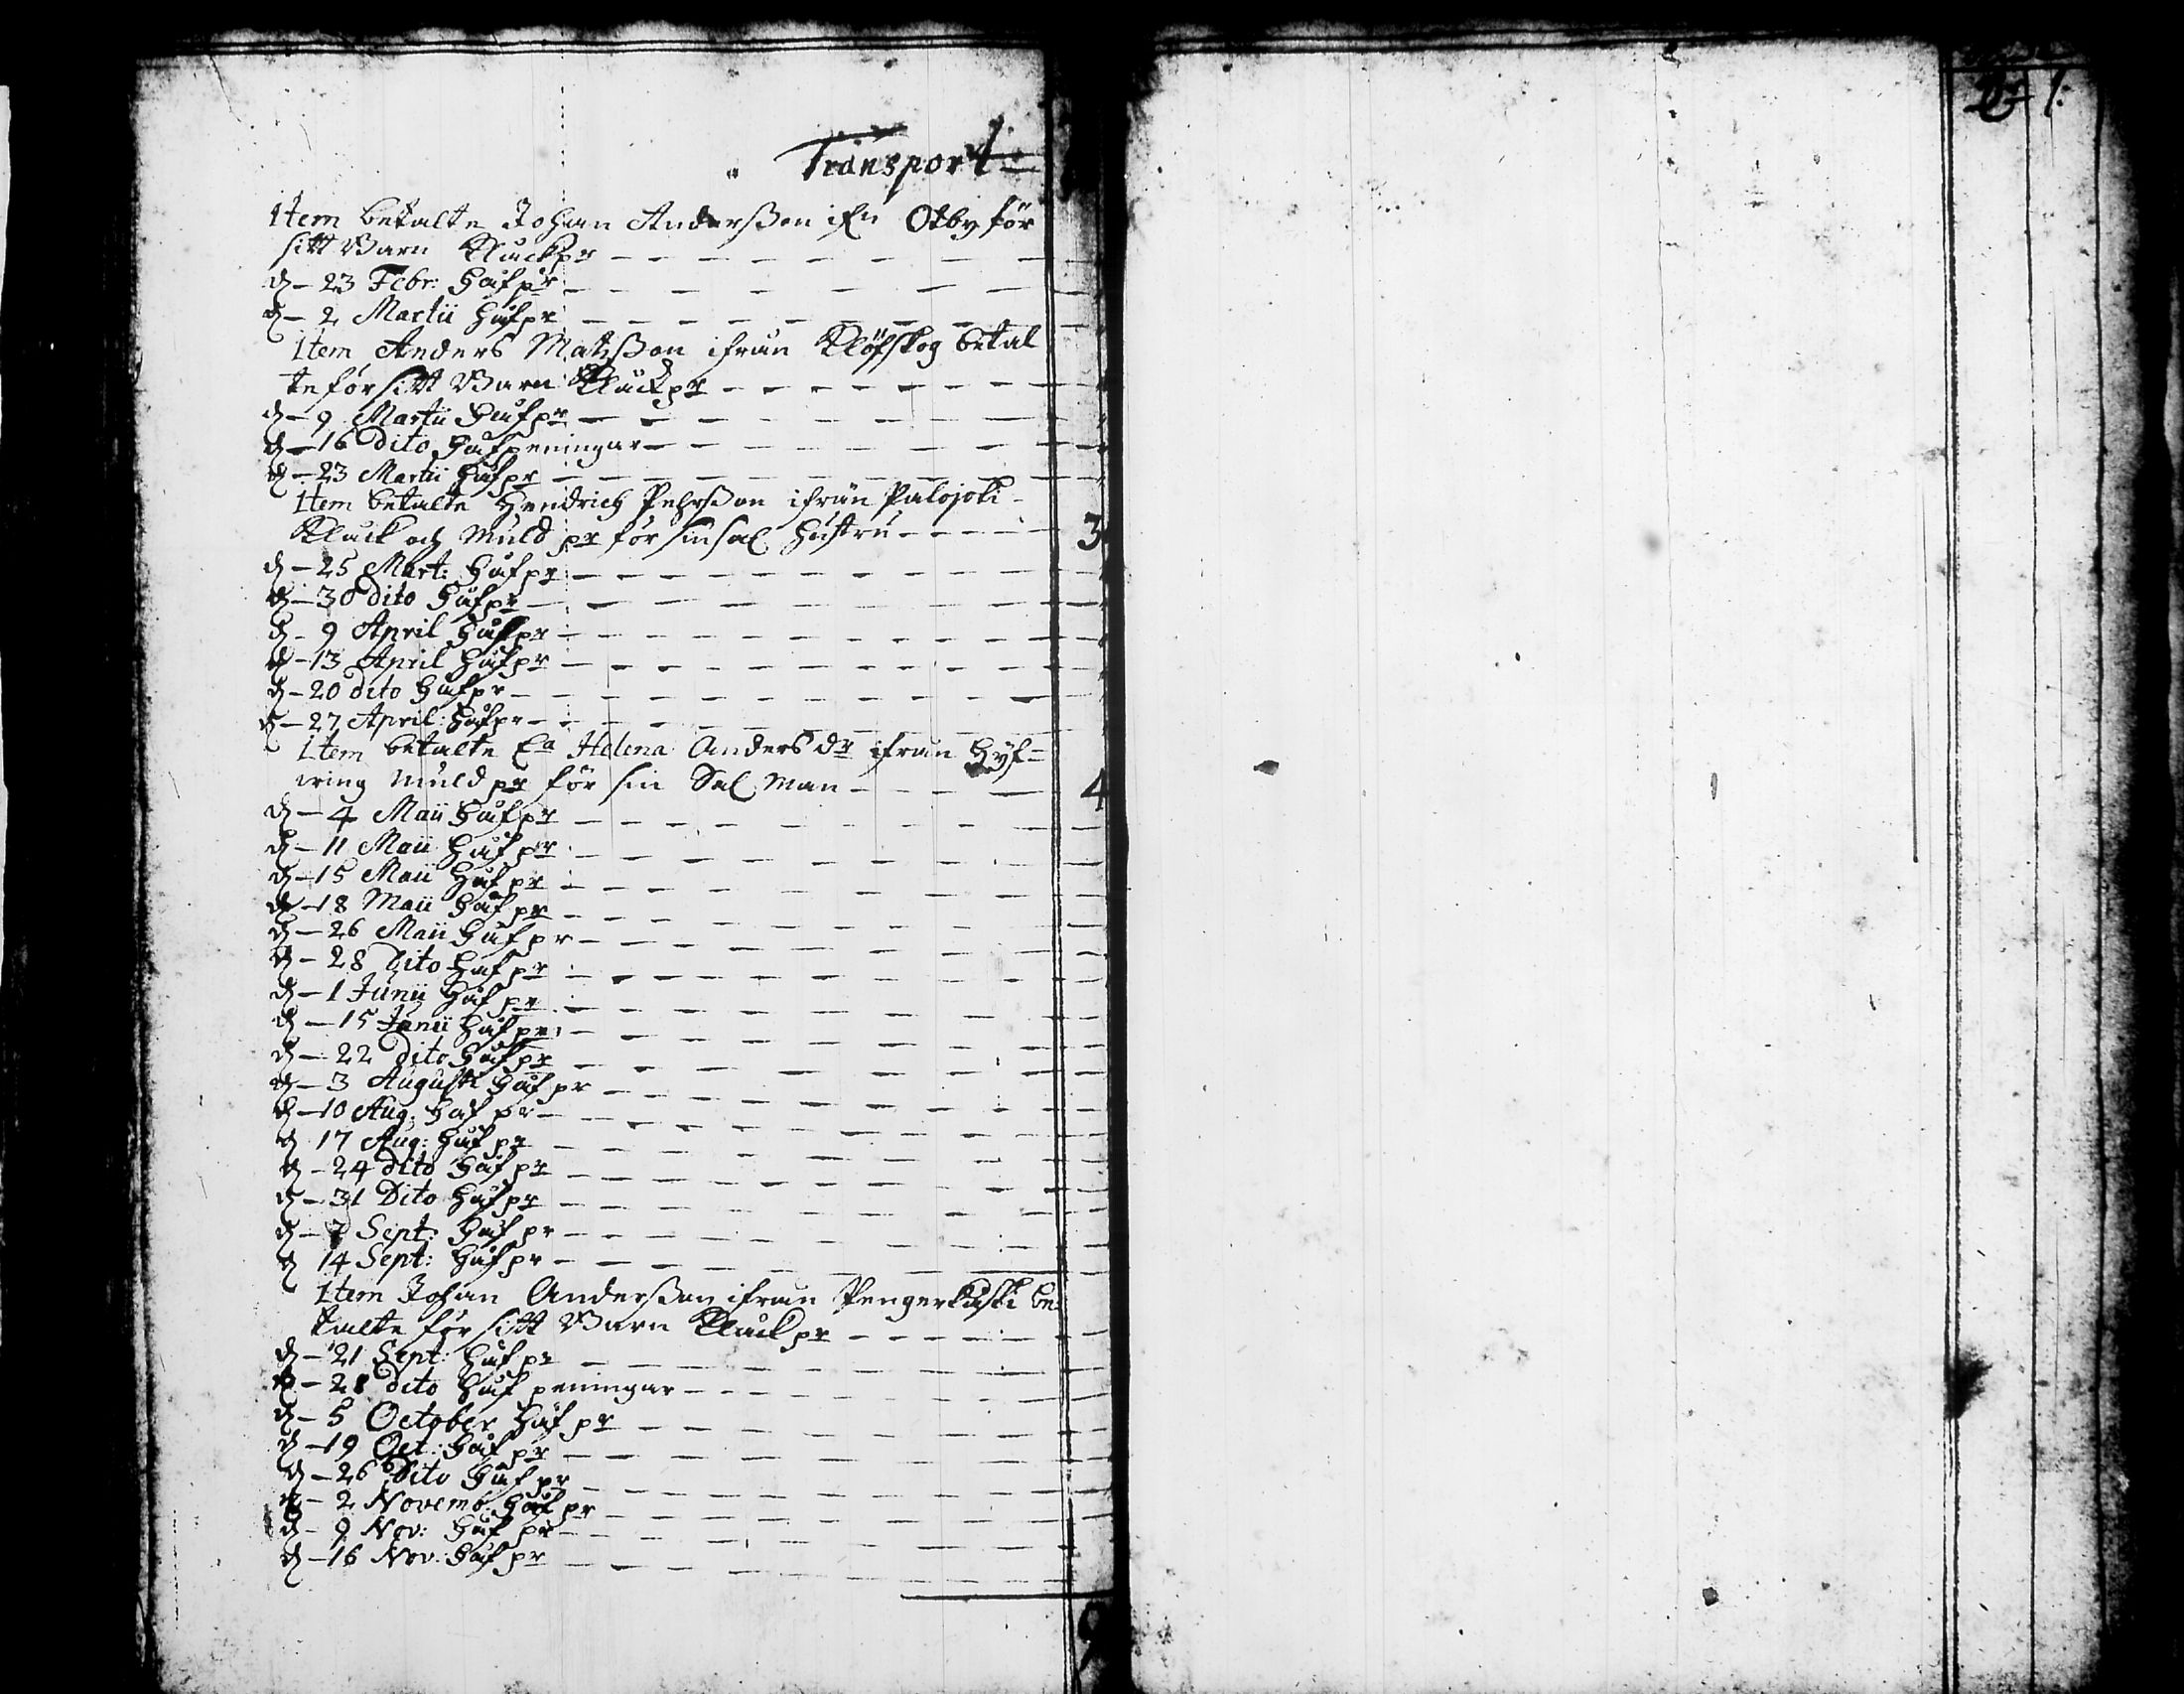 Transport
Item betalte Johan Anderßon ifrn Otby för
sitt Barn Kluckpr
d - 23 Febr: Håfpr
d - 2 Martii Håfpr
Item Anders Matzßon ifrån Klöfskog betal
te för sitt Barn Kluckpr
d - 9 Martii Håfpr
d - 16 Dito Håfpeningar
d - 23 Martii Håfpr
Item betalte Hendrich Pehrßon ifrån Palojoki
Kluck och Muld pr för sin sal Hustru 3
d - 25 Mart: Håfpr
d - 30 dito Håfpr
d - 9 April Håfpr
d - 13 April Håfpr
d - 20 dito Håfpr
d - 27 April: Håfpr
Item betalte Ea Helena Anders dr ifrån Hyf=
wing Muldpr för sin Sal Man 4
d - 4 Maii Håfpr
d - 11 Maii Håf pr
d - 15 Maii Håf pr
d - 18 Maii Håf pr
d - 26 Maii Håf pr
d - 28 Dito Håf pr
d - 1 Junii Håf pr
d - 15 Junii Håf pr
d - 22 Dito Håf pr
d - 3 Augusti Håf pr
d - 10 Aug: Håf pr
d 17 Aug: Håf pr
d - 24 dito Håf pr
d - 31 Dito Håf pr
d - 7 Sept: Håf pr
d 14 Sept: Håf pr
Item Johan Anderßon ifrån Pengerkåski be
talte för sitt Barn Kluck pr
d - 21 Sept: Håf pr
d - 28 dito Håf peningar
d - 5 October Håf pr
d - 19 Oct: Håf pr
d - 26 Dito Håf pr
d - 2 Novemb: Håf pr
d - 9 Nov: Håf pr
d - 16 Nov: Håf pr
9